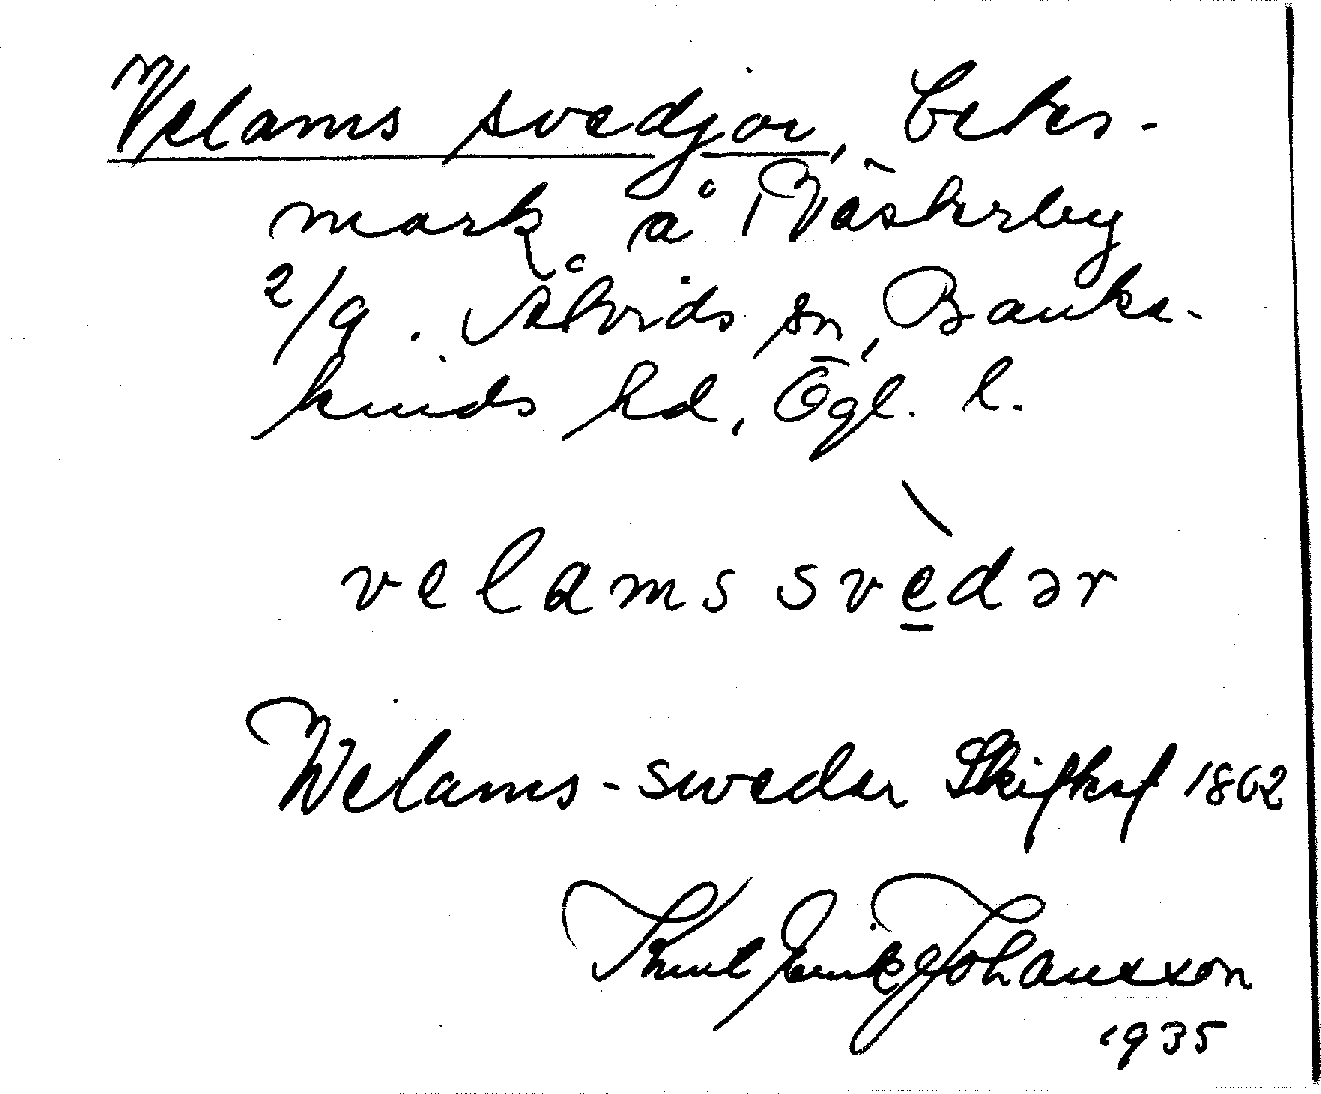 Velams svedjor, betes-
mark å Västerby
2/9. Åtvids sn, Banke-
kinds hd, Ögl. l.
velams svedər
Welams-swedar Skifskaf 1862
Knut Erik Johansson
1935